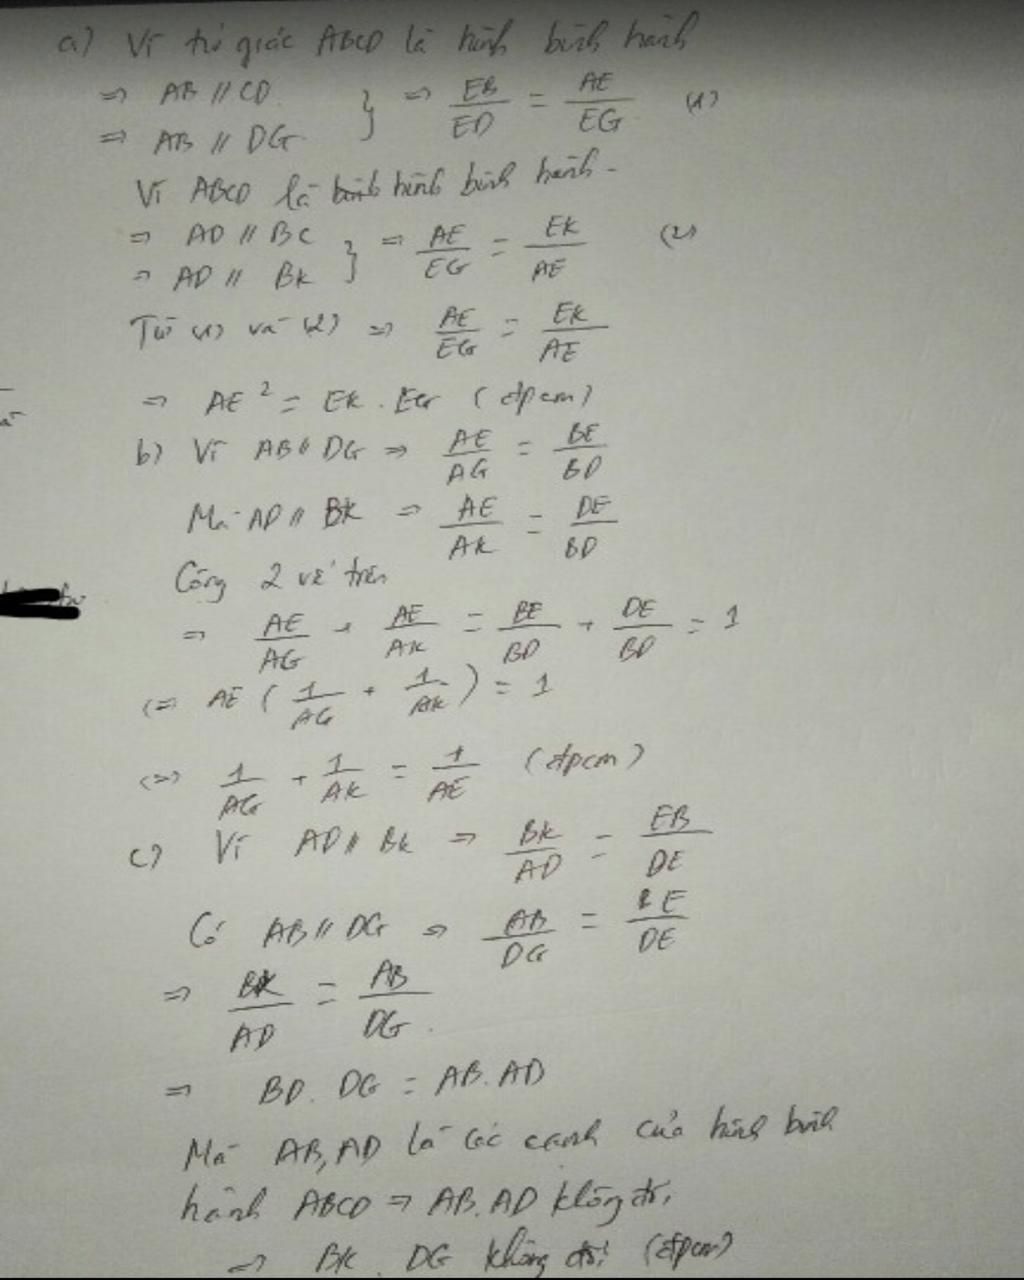 a) Vì tứ giác ABCD là hình bình hành
⇒ AB // CD
⇒ AB // DG } ⇒ EB/ED = AE/EG (1)
Vì ABCD là hình bình hành.
⇒ AD // BC
⇒ AD // BK } ⇒ AE/EG = EK/AE (2)
Từ (1) và (2) ⇒ AE/EG = EK/AE
⇒ AE² = EK . EG (đpcm)
b) Vì AB // DG ⇒ AE/AG = BE/BD
Mà AD // BK ⇒ AE/AK = DE/BD
Cộng 2 vế trên
⇒ AE/AG + AE/AK = BE/BD + DE/BD = 1
(=) AE (1/AG + 1/AK) = 1
(=) 1/AG + 1/AK = 1/AE (đpcm)
c) Vì AD // BK ⇒ BK/AD = EB/DE
Có AB // DG ⇒ AB/DG = BE/DE
⇒ BK/AD = AB/DG.
⇒ BD. DG = AB. AD
Mà AB, AD là các cạnh của hình bình
hành ABCD ⇒ AB. AD không đổi
⇒ BK . DG không đổi (đpcm)